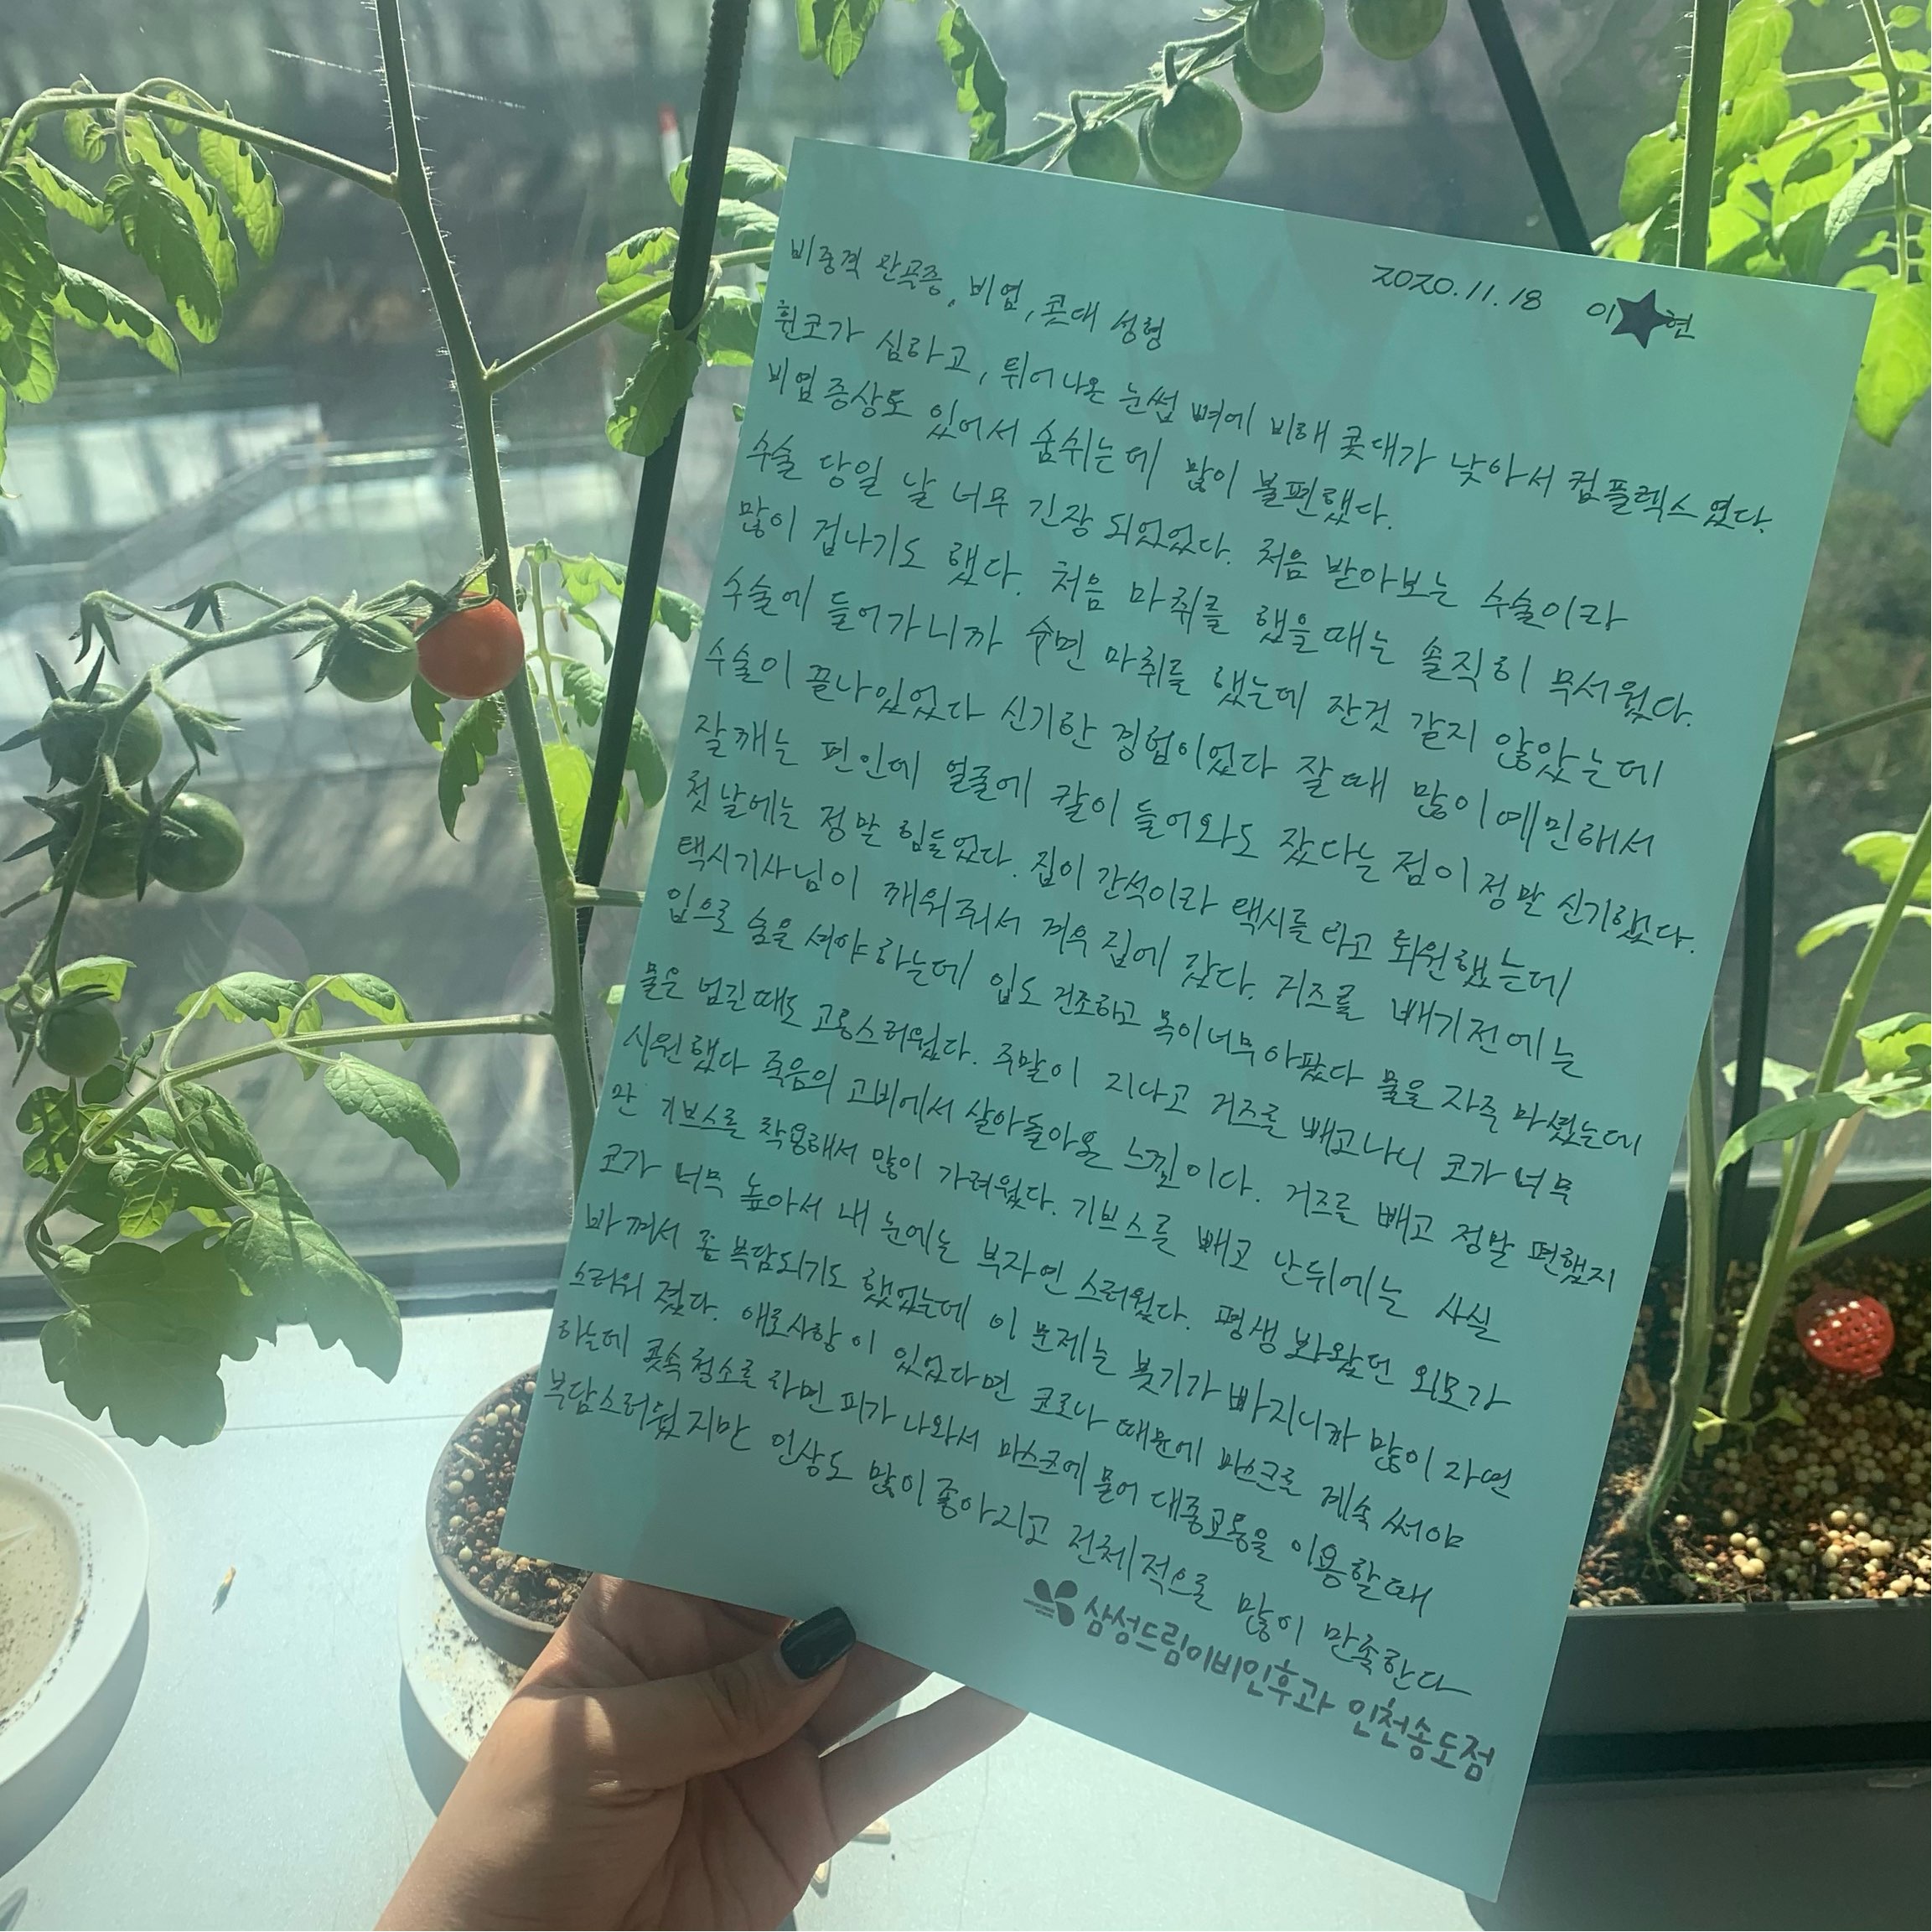 2020.11.18 이★현
비중격 완곡증, 비염, 콧대 성형
휜코가 심하고, 튀어나온 눈썹 뼈에 비해 콧대가 낮아서 컴플렉스였다.
비염증상도 있어서 숨쉬는데 많이 불편했다.
수술 당일 날 너무 긴장 되었었다. 처음 받아보는 수술이라
많이 겁나기도 했다. 처음 마취를 했을때는 솔직히 무서웠다.
수술에 들어가니까 수면 마취를 했는데 잔것 같지 않았는데
수술이 끝나있었다 신기한 경험이었다 잘때 많이 예민해서
잘깨는 편인데 얼굴에 칼이 들어와도 잤다는 점이 정말 신기했다.
첫날에는 정말 힘들었다. 집이 간석이라 택시를 타고 퇴원했는데
택시기사님이 깨워줘서 겨우 집에 갔다. 거즈를 빼기전에는
입으로 숨을 셔야하는데 입도 건조하고 목이너무아팠다 물을 자주 마셨는데
물을 넘길때도 고통스러웠다. 주말이 지나고 거즈를 빼고나니 코가 너무
시원했다 죽음의 고비에서 살아돌아온 느낌이다. 거즈를 빼고 정말 편했지
만 기브스를 착용해서 많이 가려웠다. 기브스를 빼고 난뒤에는 사실
코가 너무 높아서 내 눈에는 부자연스러웠다. 평생 봐왔던 외모가
바껴서 좀 부담되기도 했었는데 이 문제는 붓기가 빠지니까 많이 자연
스러워 졌다. 애로사항이 있었다면 코로나 때문에 마스크를 계속 써야
하는데 콧속청소를 하면 피가 나와서 마스크에 물어 대중교통을 이용할때
부담스러웠지만 인상도 많이 좋아지고 전체적으로 많이 만족한다
삼성드림이비인후과 인천송도점